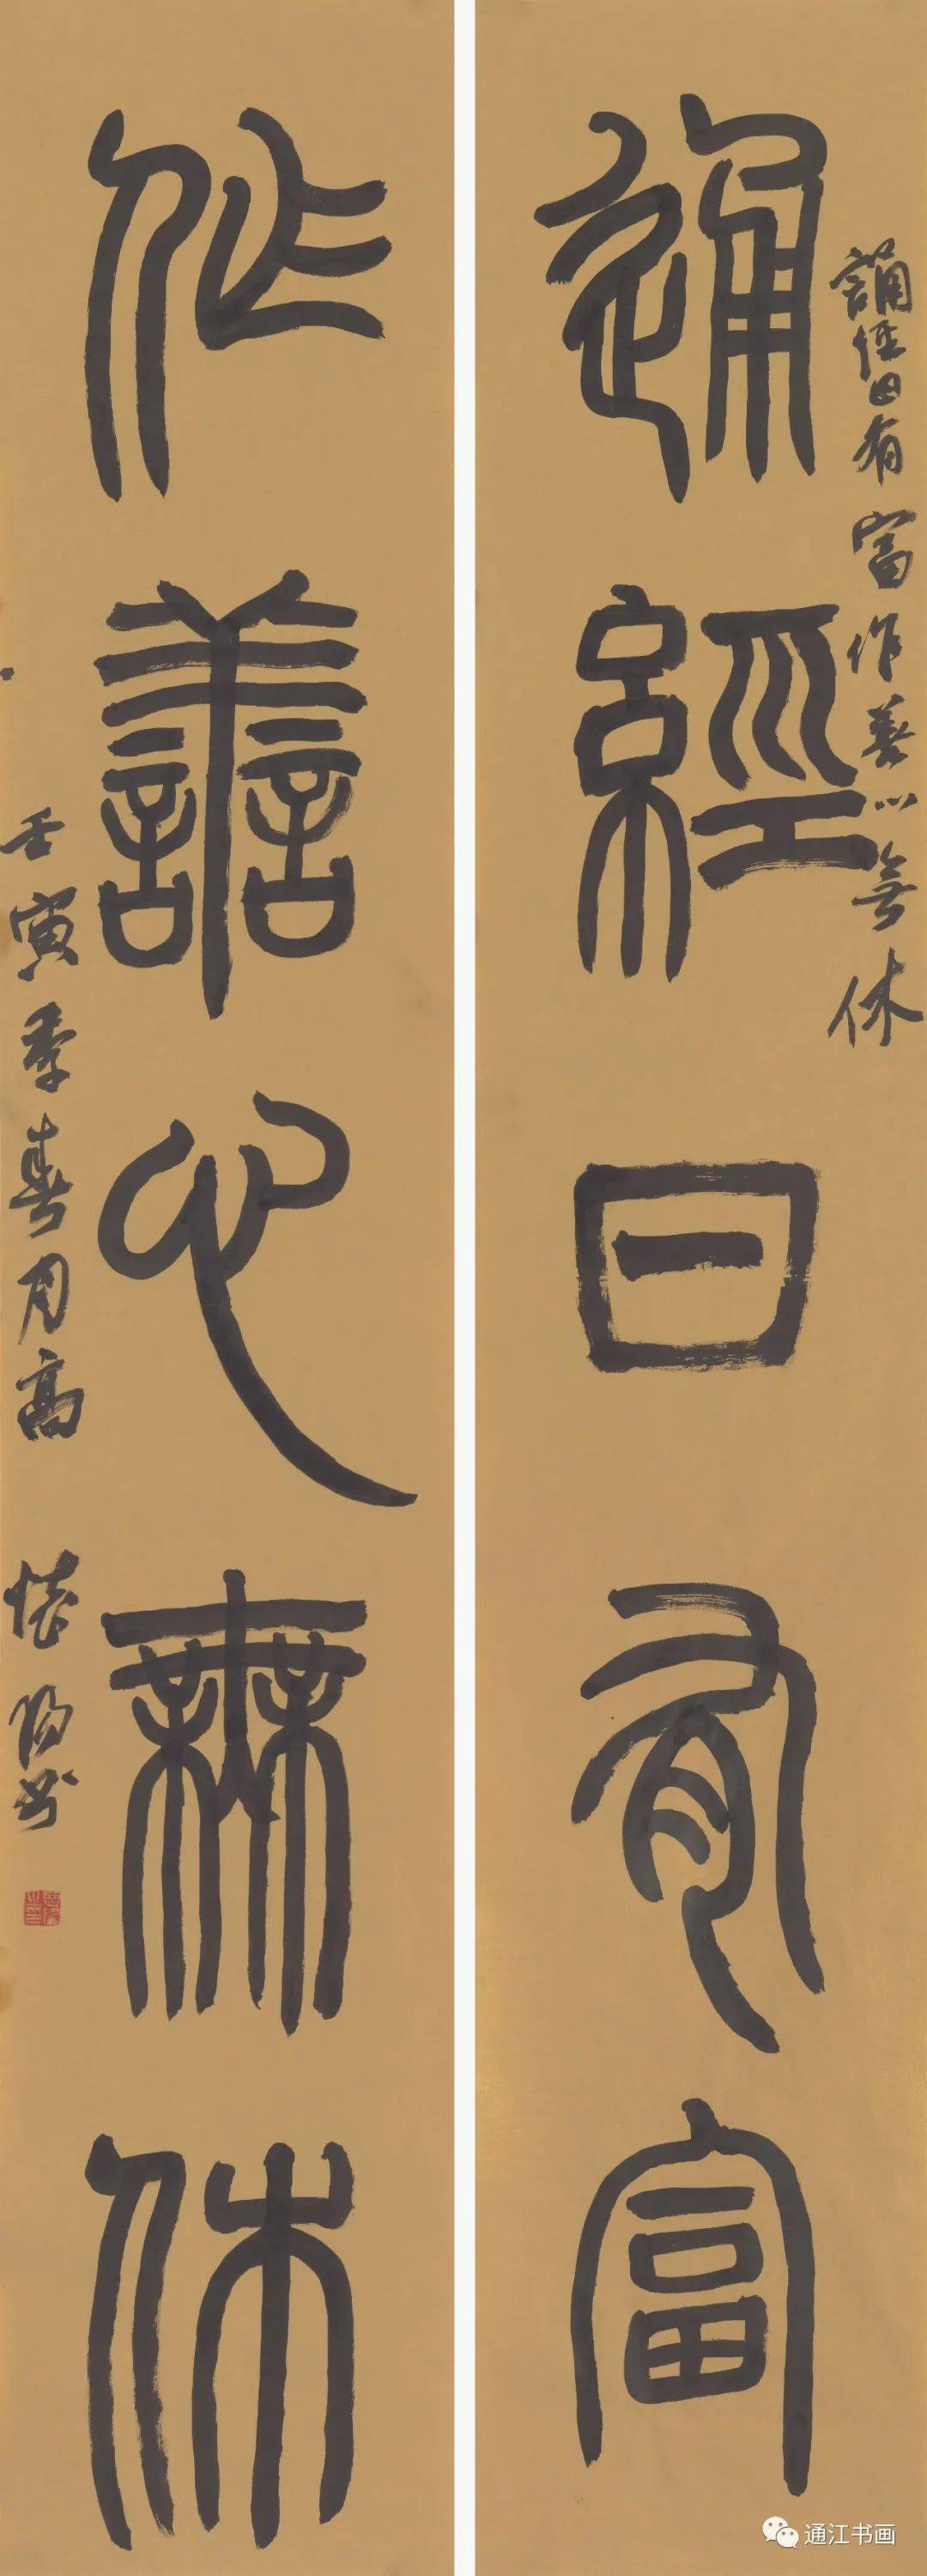 誦經日有富作善心無休
通經日有富
作善心無休
壬寅季春月高陽书
通江书画